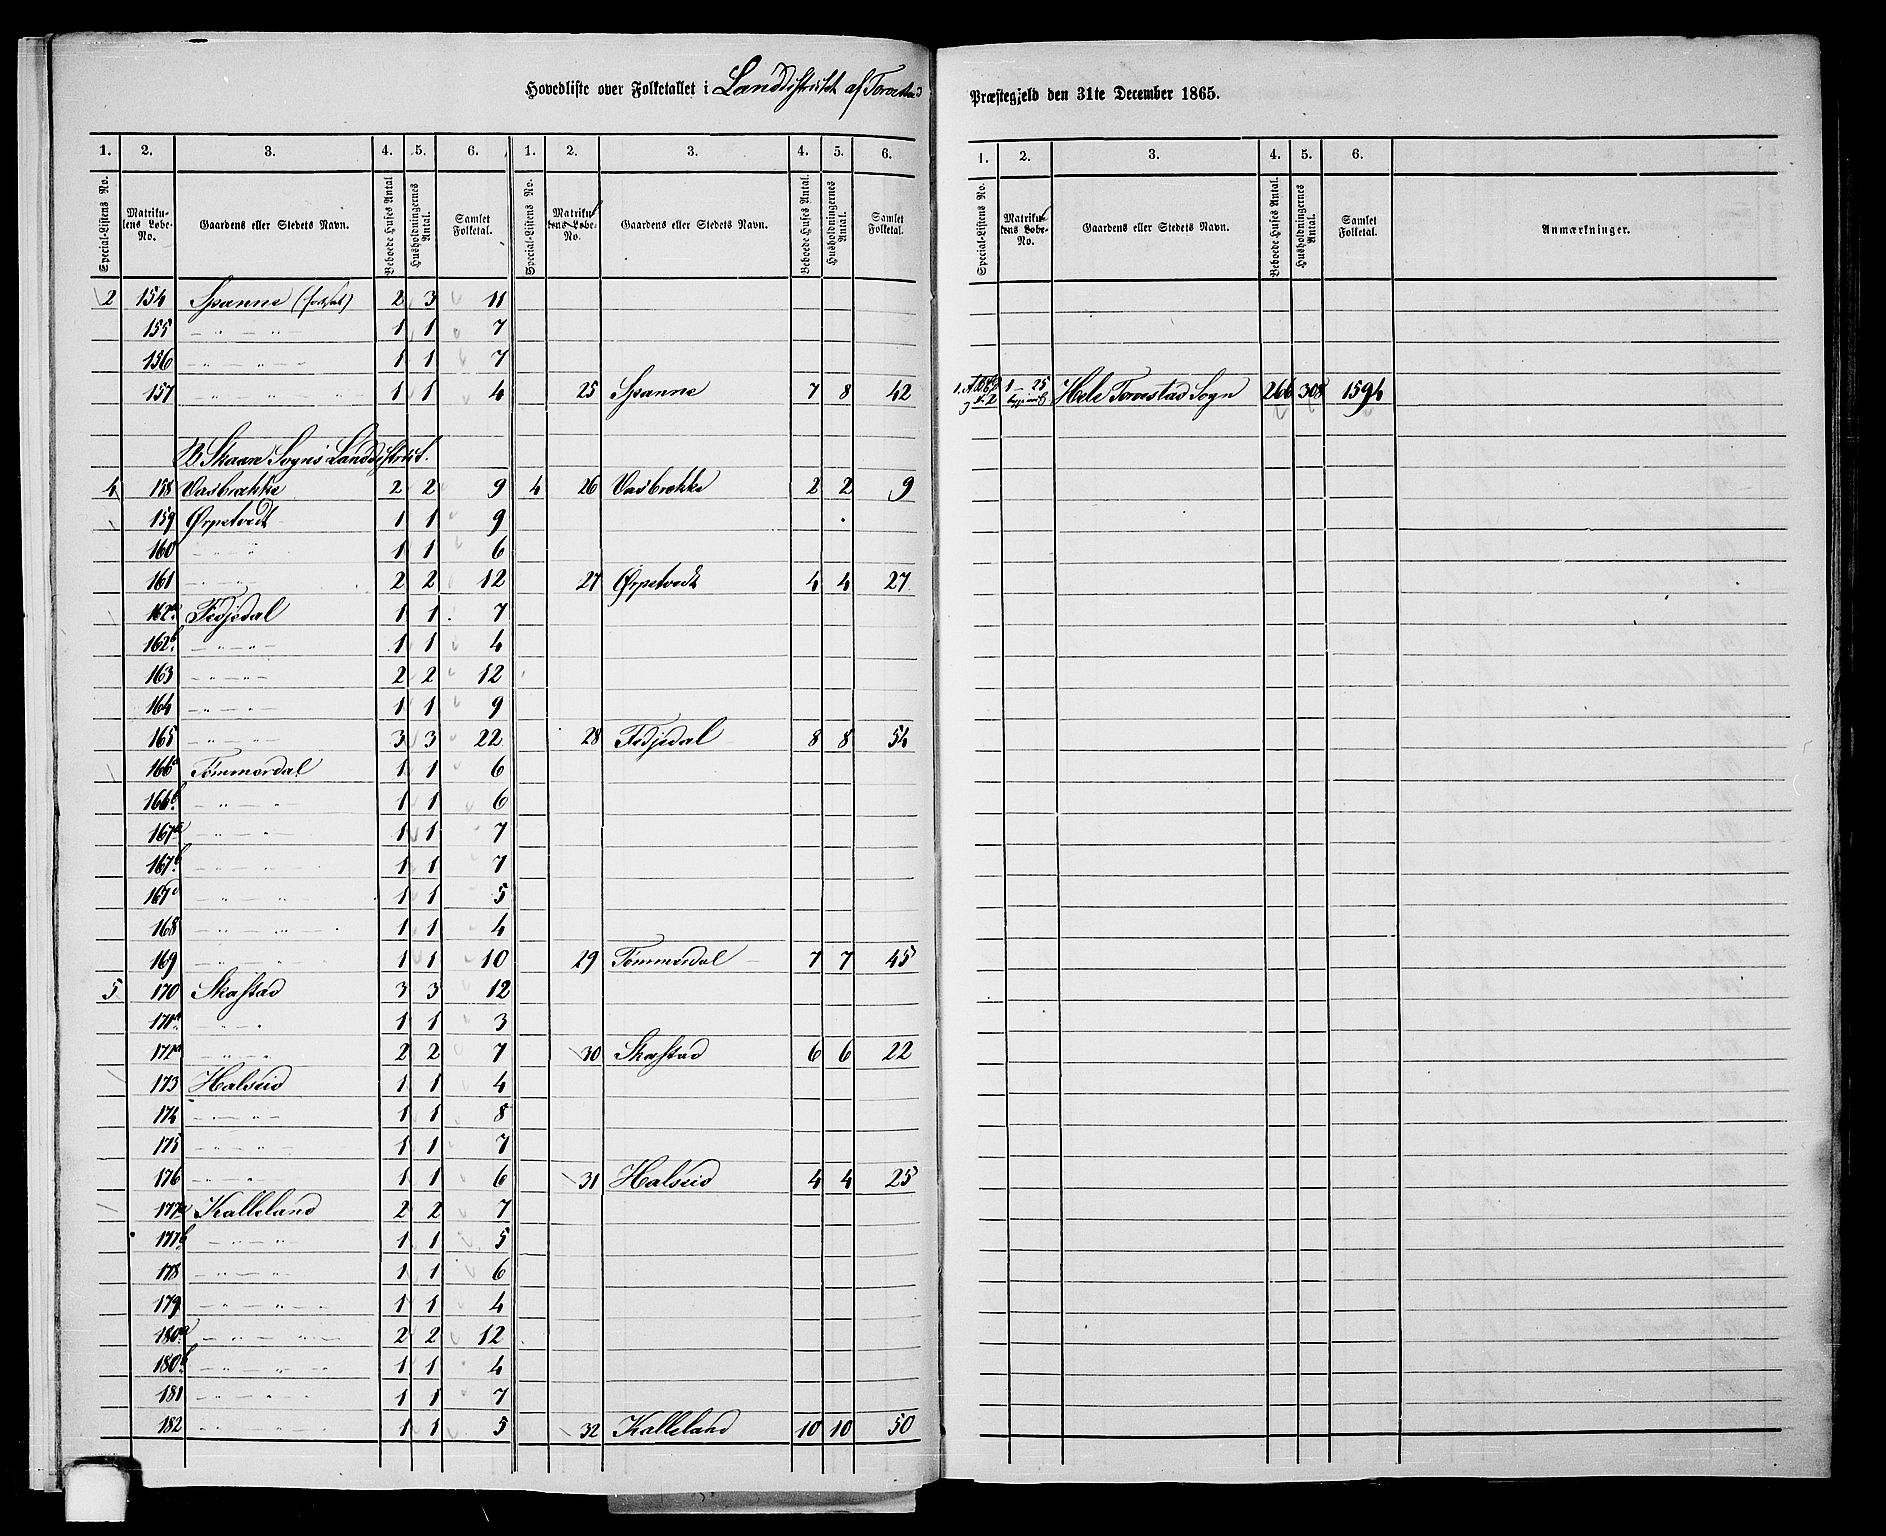 Hovedliste over Folketallet i Landdistriktet af Torvestad Præstegjeld den 31te December 1865.
1. 2. 3. 4. 5. 6. 1. 2. 3. 4. 5. 6. 1. 2. 3. 4. 5. 6.
Special-Listens No. Matrikulens Løbe-No. Gaardens eller Stedets Navn. Beboede Huses Antal Husholdningernes Antal. Samlet Folketal. Special-Listens No. Matrikulens Løbe-No. Gaardens eller Stedets Navn. Beboede Huses Antal. Husholdningernes Antal. Samlet Folketal. Special-Listens No. Matrikulens Løbe-No. Gaardens eller Stedets Navn. Beboede Huses Antal. Husholdningernes Antal. Samlet Folketal. Anmærkninger.
2 154 Spanne (fortsat) 2 3 11
155 — „ — „ — 1 1 7
156 — „ — „ — 1 1 7
157 — „ — „ — „ — 1 1 4 25 Spanne 7 8 42 1 — 25 Hele Torvestad Sogn 266 308 1594
B. Skaare Sogns Landdistrict.
4 158 Vasbrække 2 2 9 4 26 Vasbrække 2 2 9
159 Ørpetvedt 1 1 9
160 — „ — „ 1 1 6
161 — „ — „ — 2 2 12 27 Ørpetvedt 4 4 27
162a. Fedjedal 1 1 7
162b. — „ — „ — 1 1 4
163 — „ — „ — 2 2 12
164 — „ — „ — 1 1 9
165 — „ — „ — 3 3 22 28 Fedjedal 8 8 54
166a Tømmerdal 1 1 6
166b. — „ — „ — 1 1 6
167a — „ — „ — 1 1 7
167b. — „ — „ — 1 1 7
167d — „ — „ — 1 1 5
168 — „ — „ — „ 1 1 4
169 — „ — „ — „ 1 1 10 29 Tømmerdal — 7 7 45
5 170 Skastad 3 3 12
171a. — „ — „ 1 1 3
172a — „ — „ 2 2 7 30 Skastad 6 6 22
173 Halseid 1 1 4
174 — „ — „ — 1 1 8
175 — „ — „ — 1 1 7
176 — „ — „ — 1 1 6 31 Halseid 4 4 25
177a Kalleland 2 2 7
177b. — „ — „ — 1 1 5
178 — „ — „ — 1 1 6
179 — „ — „ — „ 1 1 4
180a. — „ — „ — 2 2 12
180b. — „ — „ — „ 1 1 4
181 — „ — „ — „ 1 1 7
182 — „ — „ — 1 1 5 32 Kalleland 10 10 50